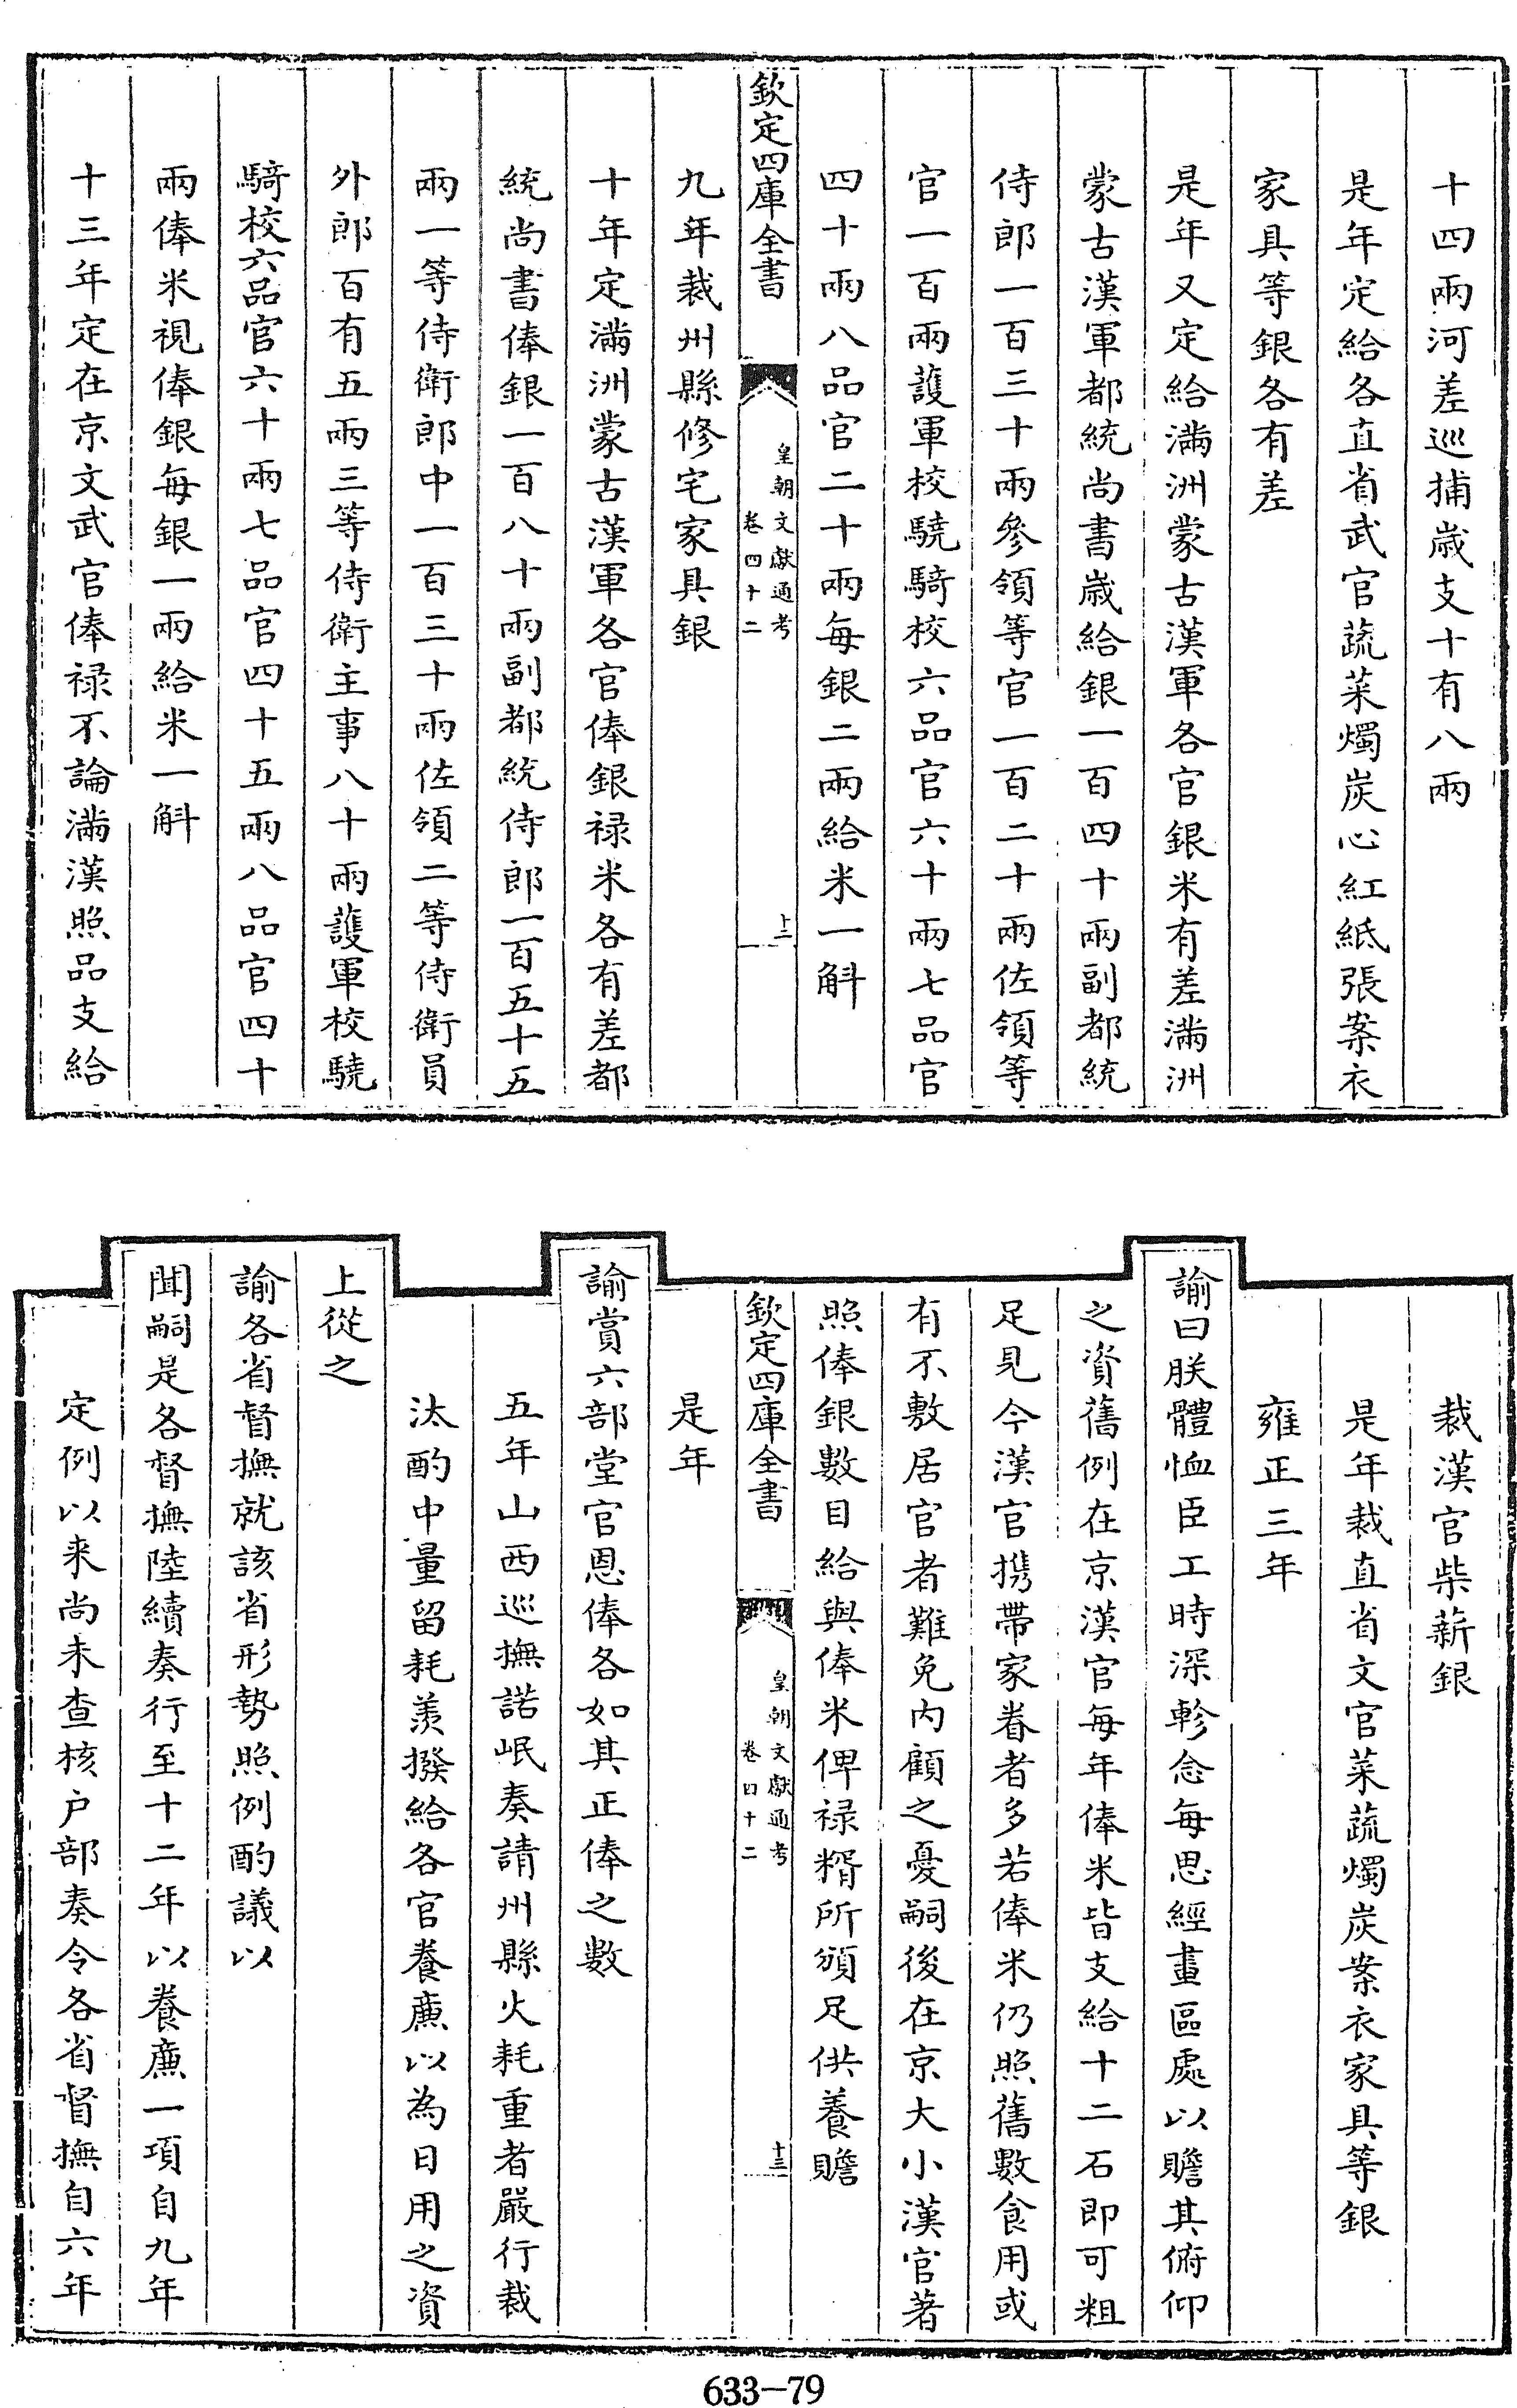 十四兩河差巡捕歳支十有八兩
是年定給各直省武官蔬菜燭炭心紅紙張案衣
家具等銀各有差
是年又定給滿洲蒙古漢軍各官銀米有差滿洲
蒙古漢軍都統尚書歳給銀一百四十兩副都統
侍郎一百三十兩參領等官一百二十兩佐領等
官一百兩護軍校驍騎校六品官六十兩七品官
四十兩八品官二十兩每銀二兩給米一斛
欽定四庫全書
皇朝文獻通考
卷四十二
十二
九年裁州縣修宅家具銀
十年定滿洲蒙古漢軍各官俸銀祿米各有差都
統尚書俸銀一百八十兩副都統侍郎一百五十五
兩一等侍衛郎中一百三十兩佐領二等侍衛員
外郎百有五兩三等侍衛主事八十兩護軍校驍
騎校六品官六十兩七品官四十五兩八品官四十
兩俸米視俸銀每銀一兩給米一斛
十三年定在京文武官俸禄不論滿漢照品支給
裁漢官柴薪銀
是年裁直省文官菜蔬燭炭案衣家具等銀
雍正三年
諭曰朕體恤臣工時深軫念每思經畫區處以贍其俯仰
之資舊例在京漢官每年俸米皆支給十二石即可粗
足見今漢官携帶家眷者多若俸米仍照舊數食用或
有不敷居官者難免内顧之憂嗣後在京大小漢官著
照俸銀數目給與俸米俾禄糈所頒足供養贍
欽定四庫全書
皇朝文獻通考
卷四十二
十三
是年
諭賞六部堂官恩俸各如其正俸之數
五年山西巡撫諾岷奏請州縣火耗重者嚴行裁
汰酌中量留耗羨撥給各官養廉以為日用之資
上從之
諭各省督撫就該省形勢照例酌議以
聞嗣是各督撫陸續奏行至十二年以養廉一項自九年
定例以来尚未查核户部奏令各省督撫自六年
633-79